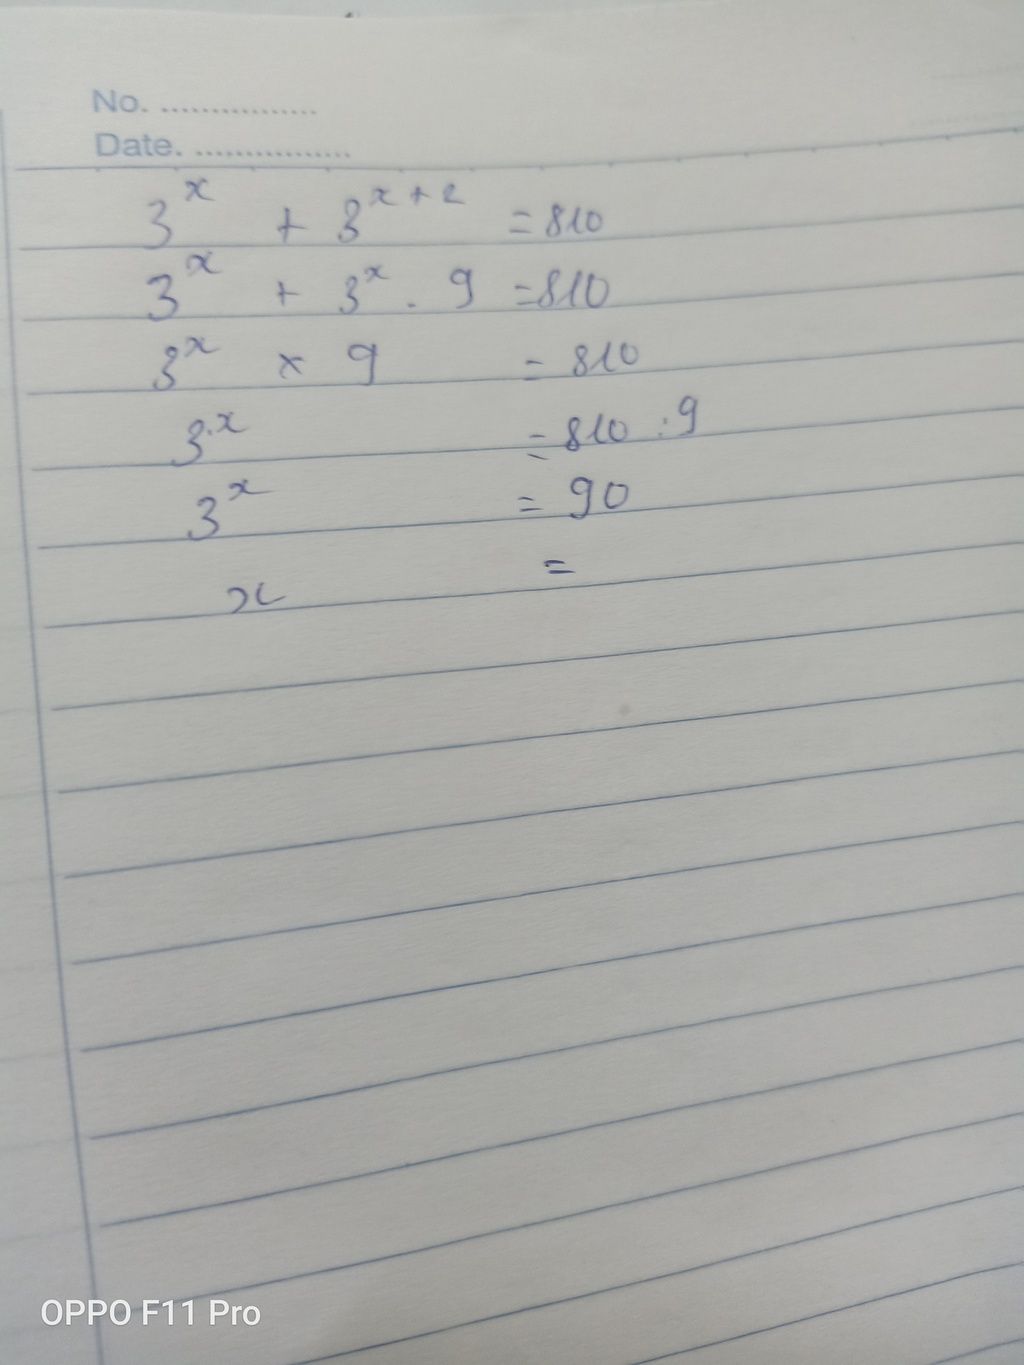 No. ................
Date. ................
3^x + 3^{x+2} = 810
3^x + 3^x . 9 = 810
3^x × 9 = 810
3^x = 810 : 9
3^x = 90
x =
OPPO F11 Pro